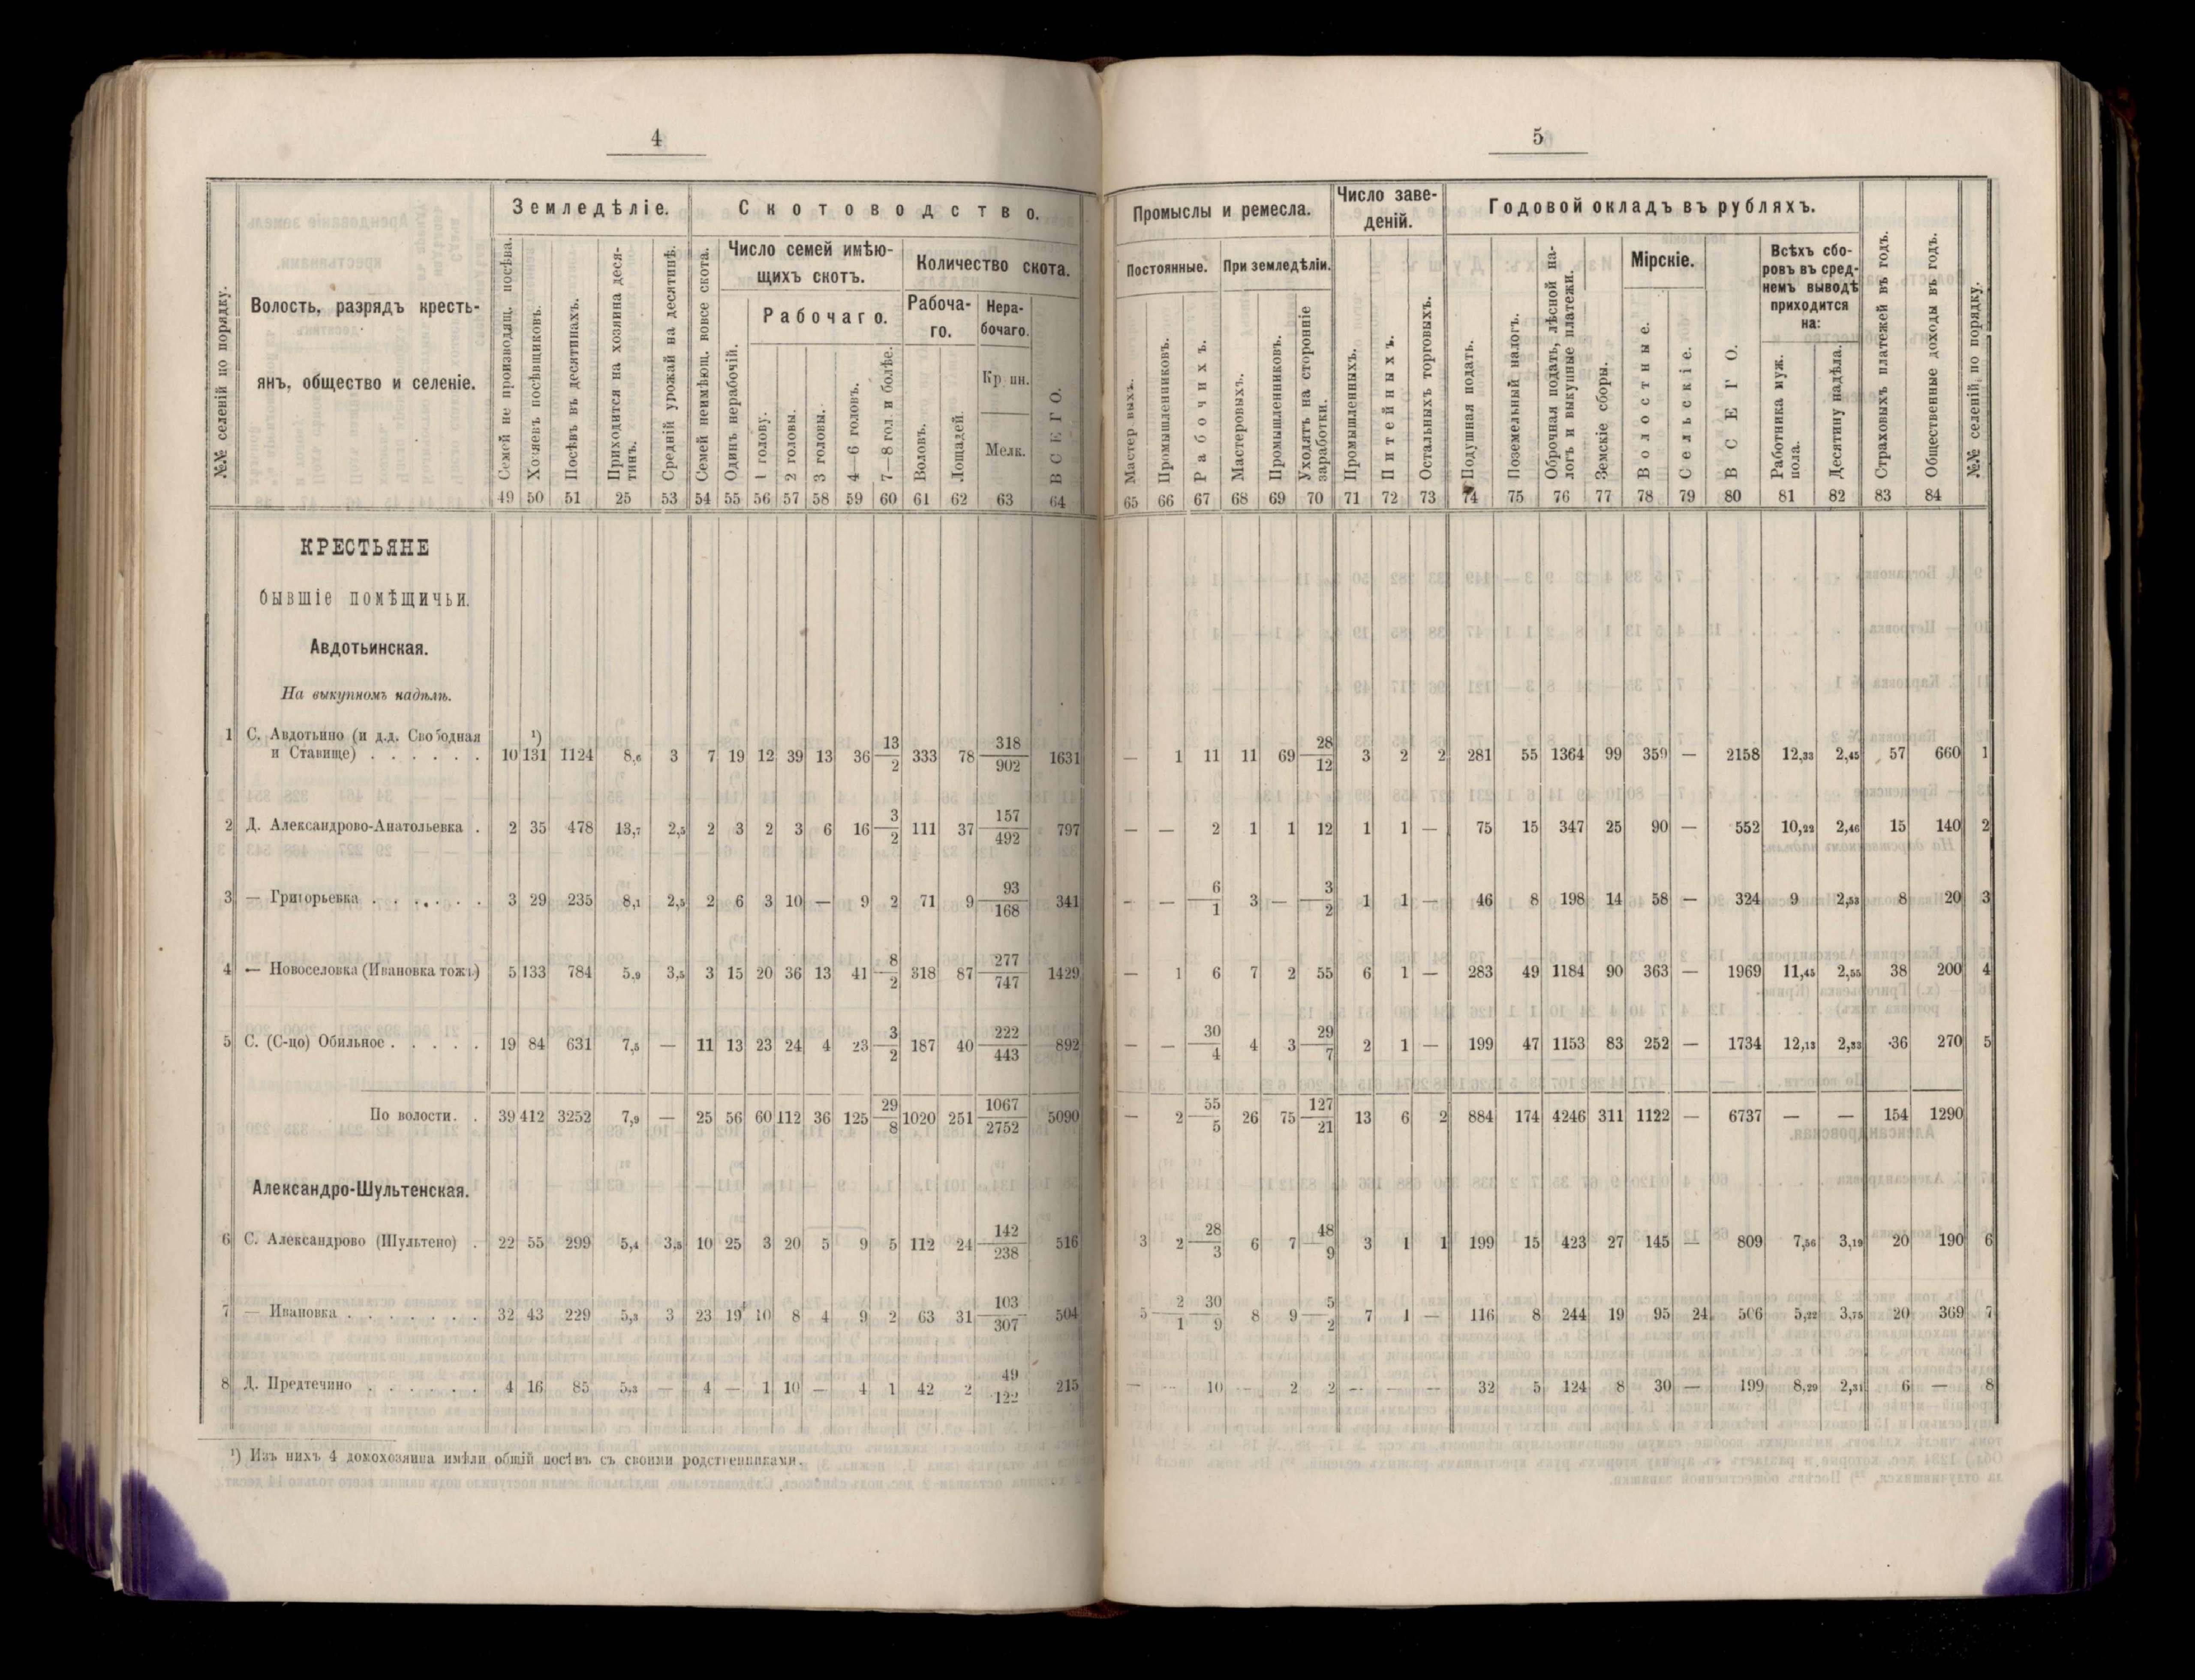 4
Земледѣліе.
Скотоводство.
№№ селеній по порядку.
Волость, разрядъ кресть-
янъ, общество и селеніе.
Семей не производящ. посѣва.
Хозяевъ посѣвщиковъ.
Посѣвъ въ десятинахъ.
Приходится на хозяина деся-
тинъ.
Средній урожай на десятинѣ.
Семей неимѣющ. вовсе скота.
Число семей имѣю-
щихъ скотъ.
Количество скота.
Одинъ нерабочій.
Рабочаго.
1 голову.
2 головы.
3 головы.
4—6 головъ.
7—8 гол. и болѣе.
Рабоча-
го.
Нера-
бочаго.
Воловъ.
Лошадей.
Мелк.
ВСЕГО.
49 50 51 25 53 54 55 56 57 58 59 60 61 62 63 64
КРЕСТЬЯНЕ
бывшіе помѣщичьи.
Авдотьинская.
На выкупномъ надѣлѣ.
1 С. Авдотьино (и д.д. Свободная
и Ставище) . . . . . . 10 ¹) 131 1124 8,6 3 7 19 12 39 13 36 13/2 333 78 318/902 1631
2 Д. Александрово-Анатольевка . 2 35 478 13,7 2,5 2 3 2 3 6 16 3/2 111 37 157/492 797
3 — Григорьевка . . . . . . 3 29 235 8,1 2,5 2 6 3 10 — 9 2 71 9 93/168 341
4 — Новоселовка (Ивановка тожъ) 5 133 784 5,9 3,5 3 15 20 36 13 41 8/2 318 87 277/747 1429
5 С. (С-цо) Обильное . . . . . 19 84 631 7,5 — 11 13 23 24 4 23 3/2 187 40 222/443 892
По волости. . 39 412 3252 7,9 — 25 56 60 112 36 125 29/8 1020 251 1067/2752 5090
Александро-Шультенская.
6 С. Александрово (Шультено) . 22 55 299 5,4 3,5 10 25 3 20 5 9 5 112 24 142/238 516
7 — Ивановка . . . . . . . 32 43 229 5,3 3 23 19 10 8 4 9 2 63 31 103/307 504
8 Д. Предтечино . . . . . . 4 16 85 5,3 — 4 — 1 10 — 4 1 42 2 49/122 215
¹) Изъ нихъ 4 домохозяина имѣли общій посѣвъ съ своими родственниками.
5
Промыслы и ремесла.
Число заве-
деній.
Годовой окладъ въ рубляхъ.
Постоянные.
При земледѣліи.
Мастеровыхъ.
Промышленниковъ.
Рабочихъ.
Мастеровыхъ.
Промышленниковъ.
Уходятъ на сторонніе
заработки.
Промышленныхъ.
Питейныхъ.
Остальныхъ торговыхъ.
Подушная подать.
Поземельный налогъ.
Оброчная подать, лѣсной на-
логъ и выкупные платежи.
Земскіе сборы.
Мірскіе.
Волостные.
Сельскіе.
ВСЕГО.
Всѣхъ сбо-
ровъ въ сред-
немъ выводѣ
приходится
на:
Работника муж.
пола.
Десятину надѣла.
Страховыхъ платежей въ годъ.
Общественные доходы въ годъ.
№№ селеній по порядку.
65 66 67 68 69 70 71 72 73 74 75 76 77 78 79 80 81 82 83 84
— 1 11 11 69 28/12 3 2 2 281 55 1364 99 359 — 2158 12,33 2,45 57 660 1
— — 2 1 1 12 1 1 — 75 15 347 25 90 — 552 10,22 2,46 15 140 2
— — 6/1 3 — 3/2 1 1 — 46 8 198 14 58 — 324 9 2,53 8 20 3
— 1 6 7 2 55 6 1 — 283 49 1184 90 363 — 1969 11,45 2,55 38 200 4
— — 30/4 4 3 29/7 2 1 — 199 47 1153 83 252 — 1734 12,13 2,33 36 270 5
— 2 55/5 26 75 127/21 13 6 2 884 174 4246 311 1122 — 6737 — — 154 1290
3 2 28/3 6 7 48/9 3 1 1 199 15 423 27 145 — 809 7,56 3,19 20 190 6
5 2/1 30/9 8 9 5/2 7 1 — 116 8 244 19 95 24 506 5,22 3,75 20 369 7
— — 10 — 2 2 — — — 32 5 124 8 30 — 199 8,29 2,31 6 — 8